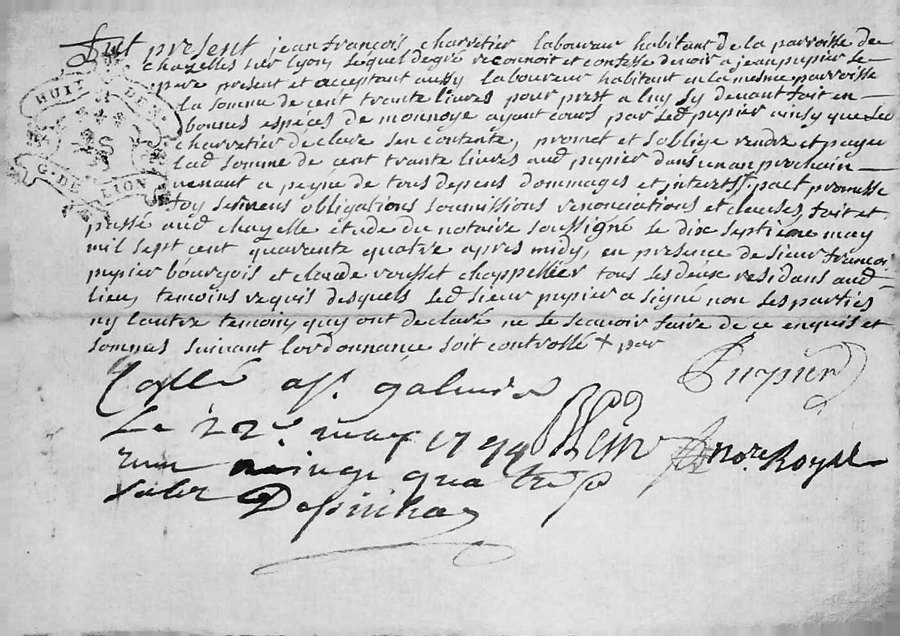 Fut present jean francois charretier laboureur habitant de la parroisse de
chazelles sur lyon, lequel de gre reconnoit et confesse devoir a jean pupier le
pere present et acceptant aussy laboureur habitant en la mesme parroisse
la somme de cent trante livres pour prest a luy sy devant fait en
bonnes especes de monnoye ayant cours par led pupier ainsy que led
charretier declare sen contente, promet et soblige rendre et payer
lad somme de cent trante livres aud pupier dans un an prochain
venant a peyne de tous depens dommages et interest. par promesse
foy serment obligations soumissions renonciations et clauses, fait et
passé aud chazelle etude du notaire soussigné le dix septieme may
mil sept cent quarante quatre apres midy, en presence de sieur francois
pupier bourgois et claude rousset chappellier tous les deux residans aud
lieu, temoins requis desquels led sieur pupier a signé non les parties
ny lautre temoin quy ont declaré ne le scavoir faire de ce enquis et
sommés suivant lordonnance soit controllé +
Pupier
HUIT DEN.
G. DE LION
a St galmier
Le 22e. may 1744
nore Royal
vingt quatre s